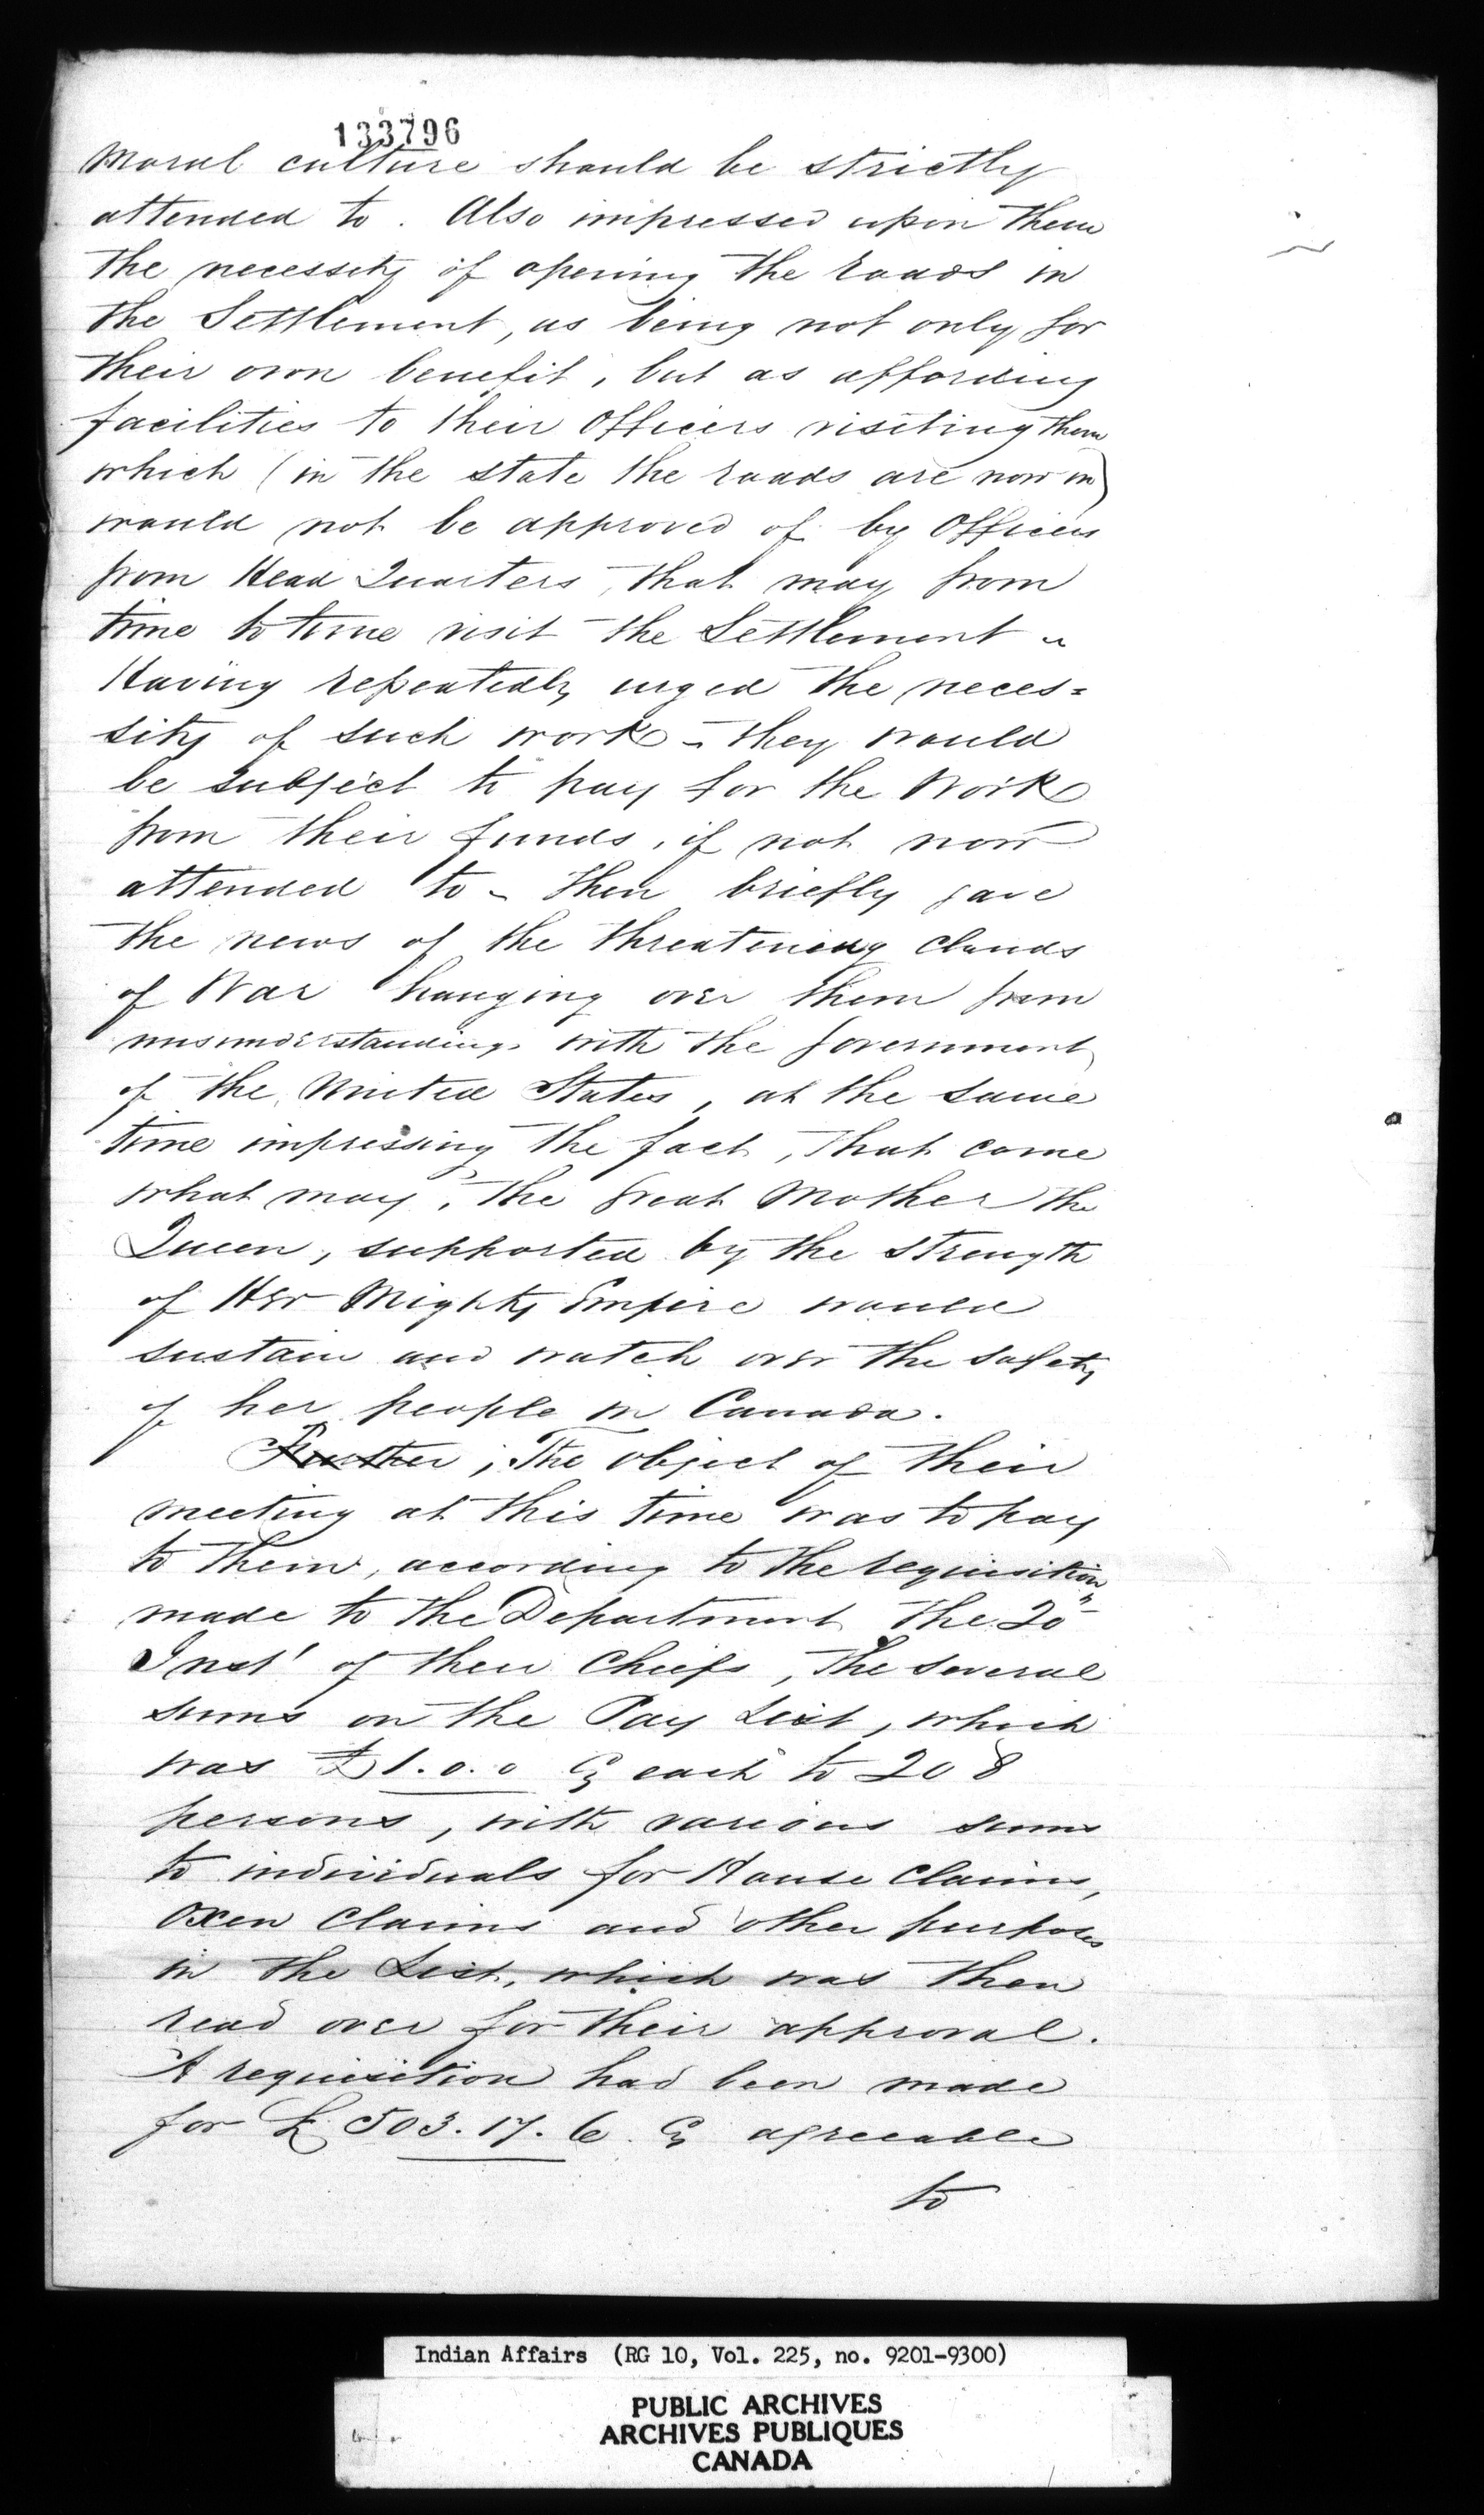 133796
Moral culture should be strictly
attended to. Also impressed upon them
the necessity of opening the roads in
the Settlement, as being not only for
their own benefit, but as affording
facilities to their Officers visiting them
which (in the state the roads are now in)
would not be approved of by Officers
from Head Quarters, that may from
time to time visit the Settlement -
Having repeatedly urged the neces=
sity of such work - they would
be subject to pay for the Work
from their funds, if not now
attended to - then briefly gave
the news of the threatening clouds
of War hanging over them from
misunderstandings with the Government
of the United States, at the same
time impressing the fact, that come
what may, the Great Mother the
Queen, supported by the strength
of Her Mighty Empire would
sustain and watch over the safety
of her people in Canada.
Further; The object of their
meeting at this time was to pay
to them, according to the requisition
made to the Department the 20"
Inst' of their Chiefs, the several
sums on the Pay List, which
was £1.0.0 Cy each to 208
persons, with various sums
to individuals for House Claims,
Oxen Claims and other purposes
in the List, which was then
read over for their approval.
A requisition had been made
for £503.17.6 Cy agreeable
to
Indian Affairs (RG 10, Vol. 225, no. 9201-9300)
PUBLIC ARCHIVES
ARCHIVES PUBLIQUES
CANADA